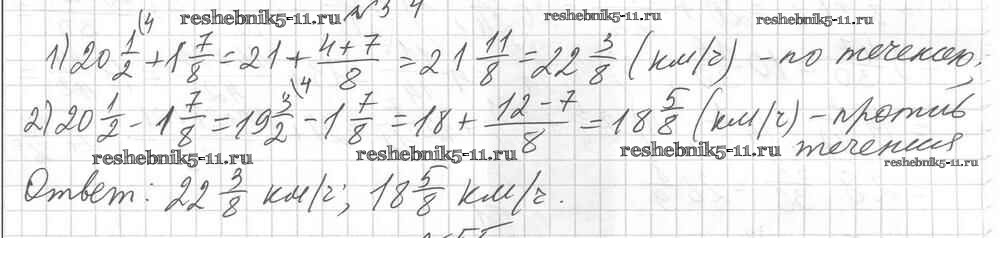 reshebnik5-11.ru №54 reshebnik5-11.ru reshebnik5-11.ru
1) 20 1/2 (4 + 1 7/8 = 21 + (4+7)/8 = 21 11/8 = 22 3/8 (км/ч) - по течению;
2) 20 1/2 - 1 7/8 = 19 3/2 (4 - 1 7/8 = 18 + (12-7)/8 = 18 5/8 (км/ч) - против
течения
reshebnik5-11.ru reshebnik5-11.ru reshebnik5-11.ru reshebnik5-11.ru
Ответ: 22 3/8 км/ч; 18 5/8 км/ч.